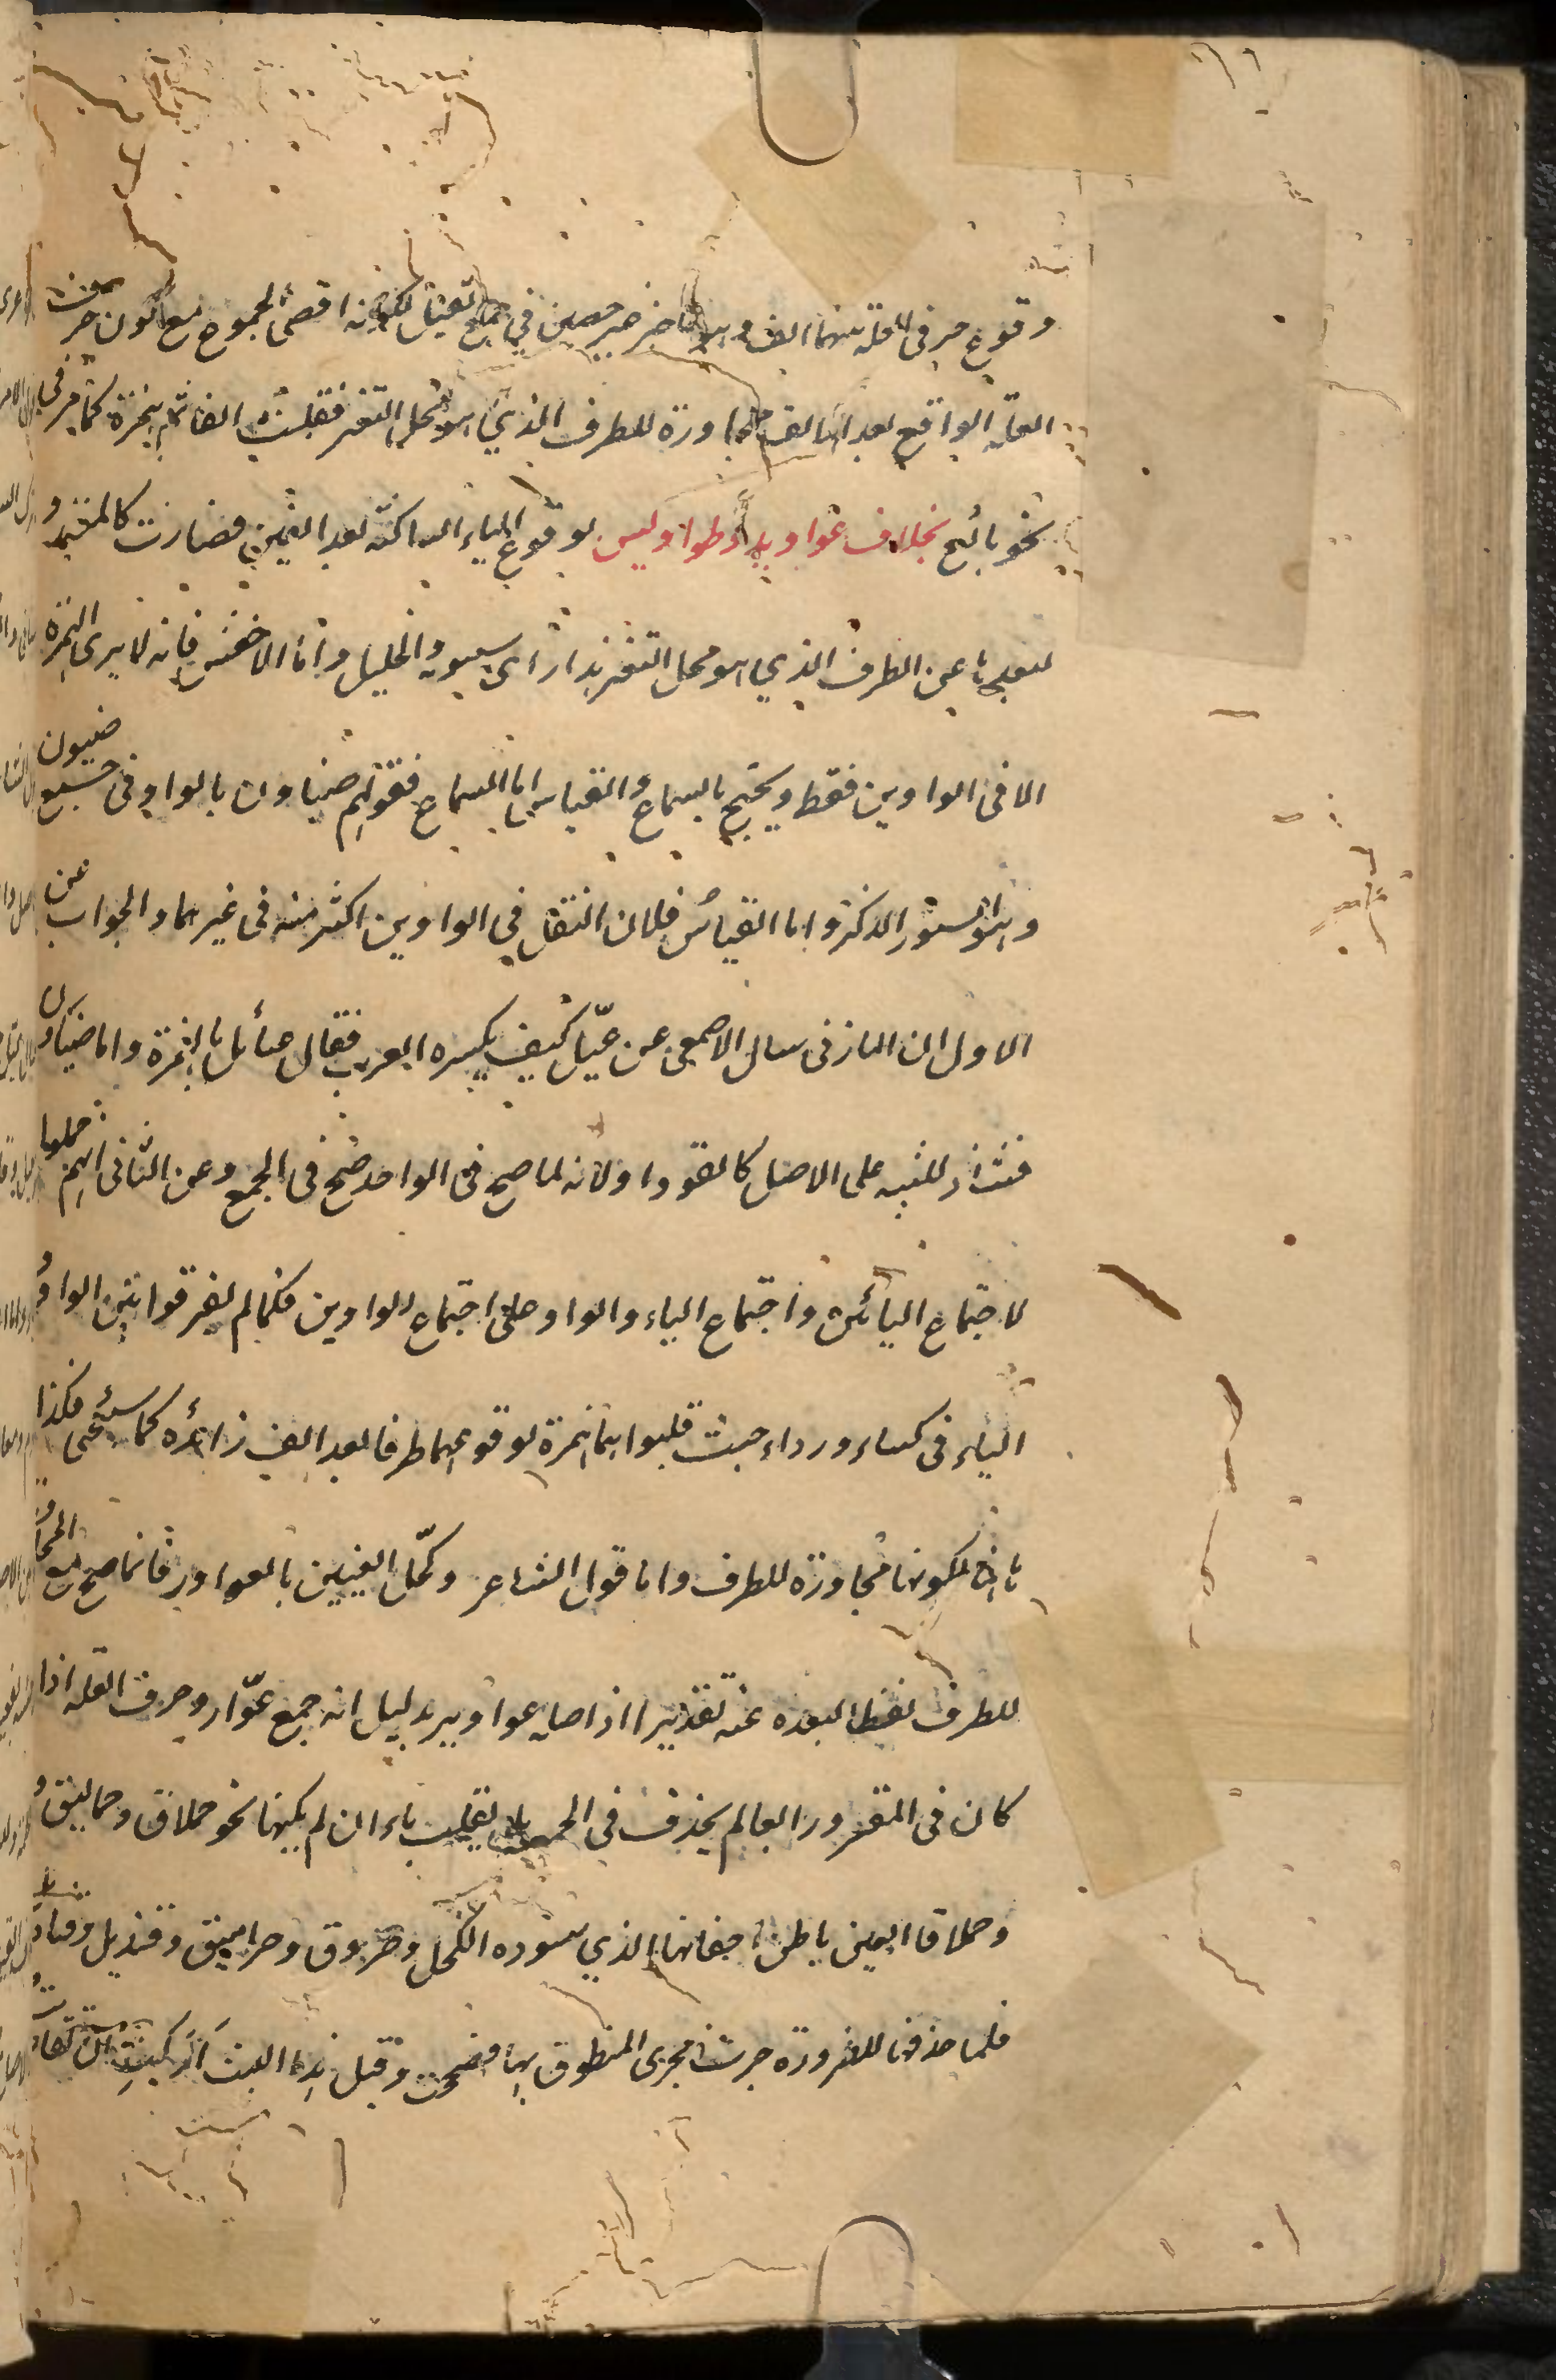 وقوع حرفى العلة بينهما الف وهو حاجز غير حصين في جمع ثقيل لكونه اقصى الجموع مع كون حرف
العلة الواقع بعد الالف مجاورة للطرف الذي هو محل التغير فقلبت الفا ثم همزة كما مر في
نحو بائع بخلاف عواوير وطواويس لوقوع الياء الساكنة بعد العين فصارت كالمقيد
لبعدها عن الطرف الذي هو محل التغير هذا رأى سيبويه والخليل واما الاخفش فانه لا يرى الهمزة
الا فى الواوين فقط ويحتج بالسماع والقياس اما السماع فقولهم ضياون بالواو فى جمع ضيون
وهو السنور الذكر واما القياس فلان الثقل في الواوين اكثر منه فى غيرهما والجواب عن
الاول ان المازنى سال الاصمعى عن عيّل كيف يكسره العرب فقال عيائل بالهمزة واما ضياون
فشاذ للتنبيه على الاصل كالقود او لانه لما صح فى الواحد صح فى الجمع وعن الثانى انهم حملوا
لاجتماع اليائين واجتماع الياء والواو على اجتماع الواوين فكما لم يفرقوا بين الواو و
الياء فى كساء ورداء حيث قلبوا هما همزة لوقوعهما طرفا بعد الف زائدة كما سيجئ فكذا
هاهنا لكونها مجاورة للطرف واما قول الشاعر وكحّل العينين بالعواور فانما صح مع المجاورة
للطرف لفظا لبعده عنه تقديرا اذ اصله عواوير بدليل انه جمع عوّار وحرف العلة اذا
كان فى المفرد رابعا لم يحذف في الجمع بل تقلب ياء ان لم يكنها نحو حملاق وحماليق و
وحملاق العين باطن اجفانها الذي يسوده الكحل وجرموق وجراميق وقنديل وقناديل
فلما حذفها للضرورة جرت مجرى المنطوق بها فصحت وقبل هذا البيت